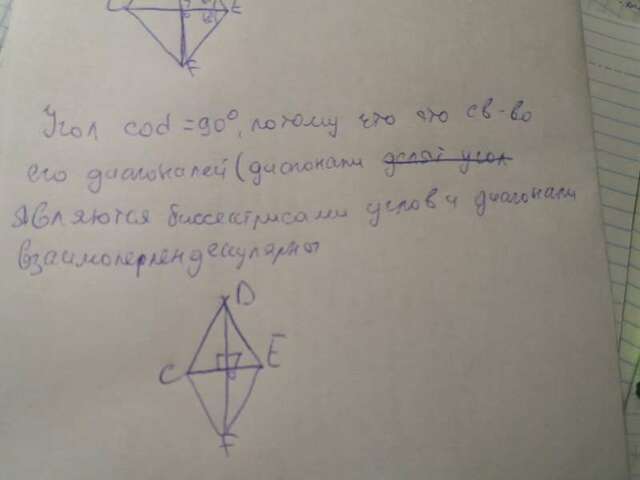 E
F
Угол cod = 90°, потому что это св-во
его диагоналей (диагонали делят угол
являются биссектрисами углов и диагонали
взаимоперпендикулярны
D
C E
F